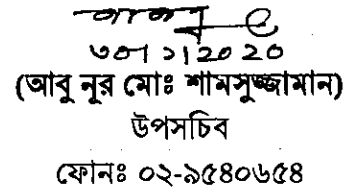 ৩০/১/২০২০
(আবু নূর মোঃ শামসুজ্জামান)
উপসচিব
ফোনঃ ০২-৯৫৪০৬৫৪